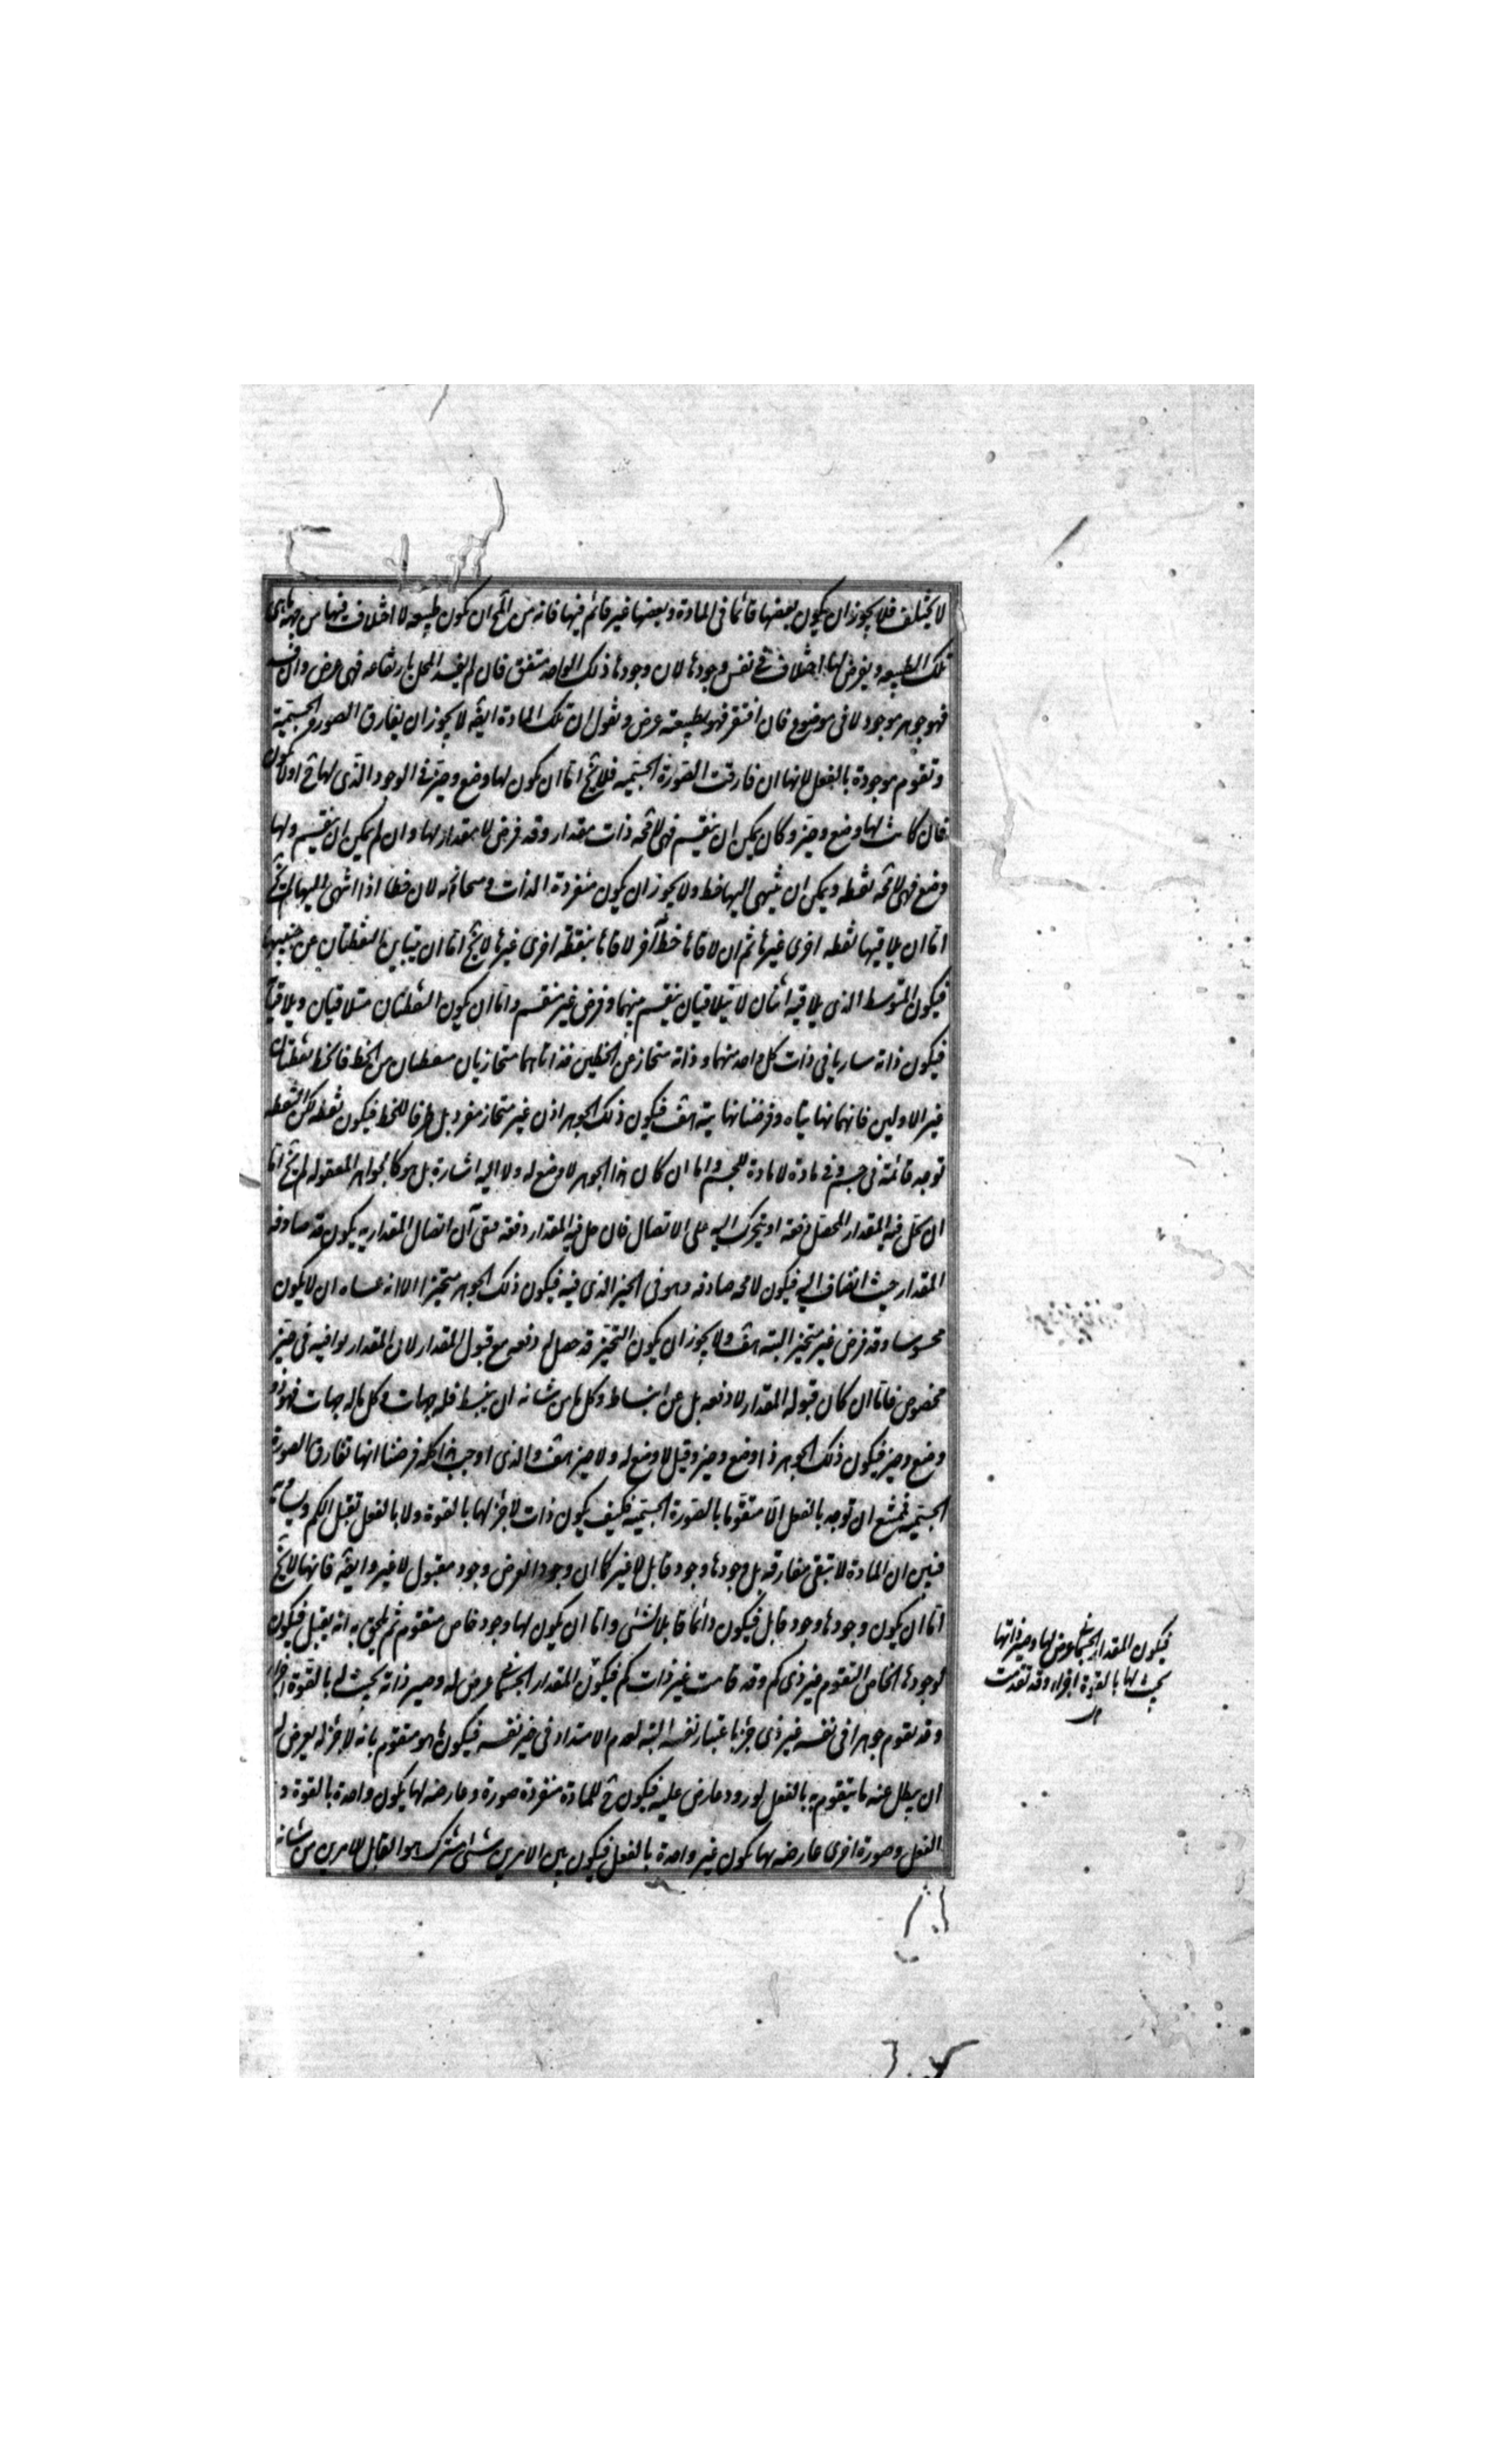 لا يختلف فلا يجوز ان يكون بعضها قائما فى المادة وبعضها غير قائم فيها فانه من المح ان يكون طبيعه لا اختلاف فيها من جهة ما هى
تلك الطبيعه ويعرض لها اختلاف فى نفس وجودها لان وجودها ذلك الواحد متفق فان لم يفسد المحل بارتفاعه فهى عرض وان
فهو جوهر موجود لا فى موضوع فان افتقر فهو بطبيعته عرض ونقول ان تلك المادة ايضه لا يجوز ان يفارق الصورة الجسمية
وتقوم موجودة بالفعل لانها ان فارقت الصورة الجسميه فلا يخ اما ان يكون لها وضع وحيز فى الوجود الذى لها ح او لا يكون
فان كانت لها وضع وحيز وكان يمكن ان ينقسم فهى لامحه ذات مقدار وقد فرض لا مقدار لها وان لم يمكن ان ينقسم ولها
وضع فهى لامحه نقطه ويمكن ان ينتهى اليها خط ولا يجوز ان يكون منفردة الذات ومنحازته لان خطا اذا انتهى اليها لم يخ
اما ان يلاقيها نقطه اخرى غيرها ثم ان لاقاها خط آخر لاقاها بنقطه اخرى غيرها لا يخ اما ان يتباين النقطتان عن جنبيها
فيكون المتوسط الذى يلاقيه اثنان لا يتلاقيان ينقسم بينهما وفرض غير منقسم واما ان يكون النقطتان متلاقيان ويلاقيا
فيكون ذاته ساريا فى ذات كل واحد منهما وذاته منحاز عن الخطين فذاتاهما منحازيان منقطعان من الخط فالخط نقطتان
غير الاوليين فانهما نهايتاه وفرضنا نهايتيه هف فيكون ذلك الجوهر اذن غير منحاز مفرد بل طرفا للخط فيكون نقطه لكن النقطه
توجد قائمة فى جسم وفى مادة لا مادة للجسم واما ان كان هذا الجوهر لا وضع له ولا اليه اشارة بل هو كالجواهر المعقوله لم يخ اما
ان يحل فيه المقدار المحصل دفعه او يتحرك اليه على الاتصال فان حل فيه المقدار دفعه ففى آن اتصال المقدار به يكون قد صادفه
المقدار حيث انضاف اليه فيكون لامحه صادفه وهو فى الحيز الذى فيه فيكون ذلك الجوهر متحيزا الا انه عساه ان لا يكون
محسوسا وقد فرض غير متحيز البته هف ولا يجوز ان يكون التحيز قد حصل له دفعه مع قبول المقدار لان المقدار يوافيه فى حيز
مخصوص فاما ان كان قبوله المقدار لا دفعه بل عن انبساط وكل ما من شانه ان ينبسط فله جهات وكل ما له جهات فهو ذو
وضع وحيز فيكون ذلك الجوهر ذا وضع وحيز وقيل لا وضع له ولا حيز هف والذى اوجب هذا كله فرضنا انها تفارق الصورة
الجسميه فيمتنع ان توجد بالفعل الا متقوما بالصورة الجسميه فكيف يكون ذات لا جزء لها بالقوة ولا بالفعل تقبل الكم
فتبين ان المادة لا تبقى مفارقه بل وجودها وجود قابل لا غير كما ان وجود العرض وجود مقبول لا غير وايضه فانها لا يخ
اما ان يكون وجودها وجود قابل فيكون دائما قابلا لشئى واما ان يكون لها وجود خاص متقوم ثم يلحق به انه يقبل فيكون
لوجودها الخاص المتقوم غير ذى كم وقد قامت غير ذات كم فيكون المقدار الجسمانى عرض له وصير ذاته بحيث له بالقوة اجزاء
وقد تقوم جوهرا فى نفسه غير ذى جزء باعتبار نفسه البته لعدم الامتداد فى حيز نفسه فيكون ما هو متقوم بانه لا جزء له يعرض له
ان يبطل عنه ما يتقوم به بالفعل لورود عارض عليه فيكون ح للمادة منفردة صورة وعارضه لها يكون واحدة بالقوة و
الفعل وصورة اخرى عارضه بها يكون غير واحدة بالفعل فيكون بين الامرين شئى مشترك هو القابل للامرين من شانه
فيكون المقدار الجسمانى عرض لها وصير ذاتها
بحيث لها بالقوة اجزاء وقد تقدمت